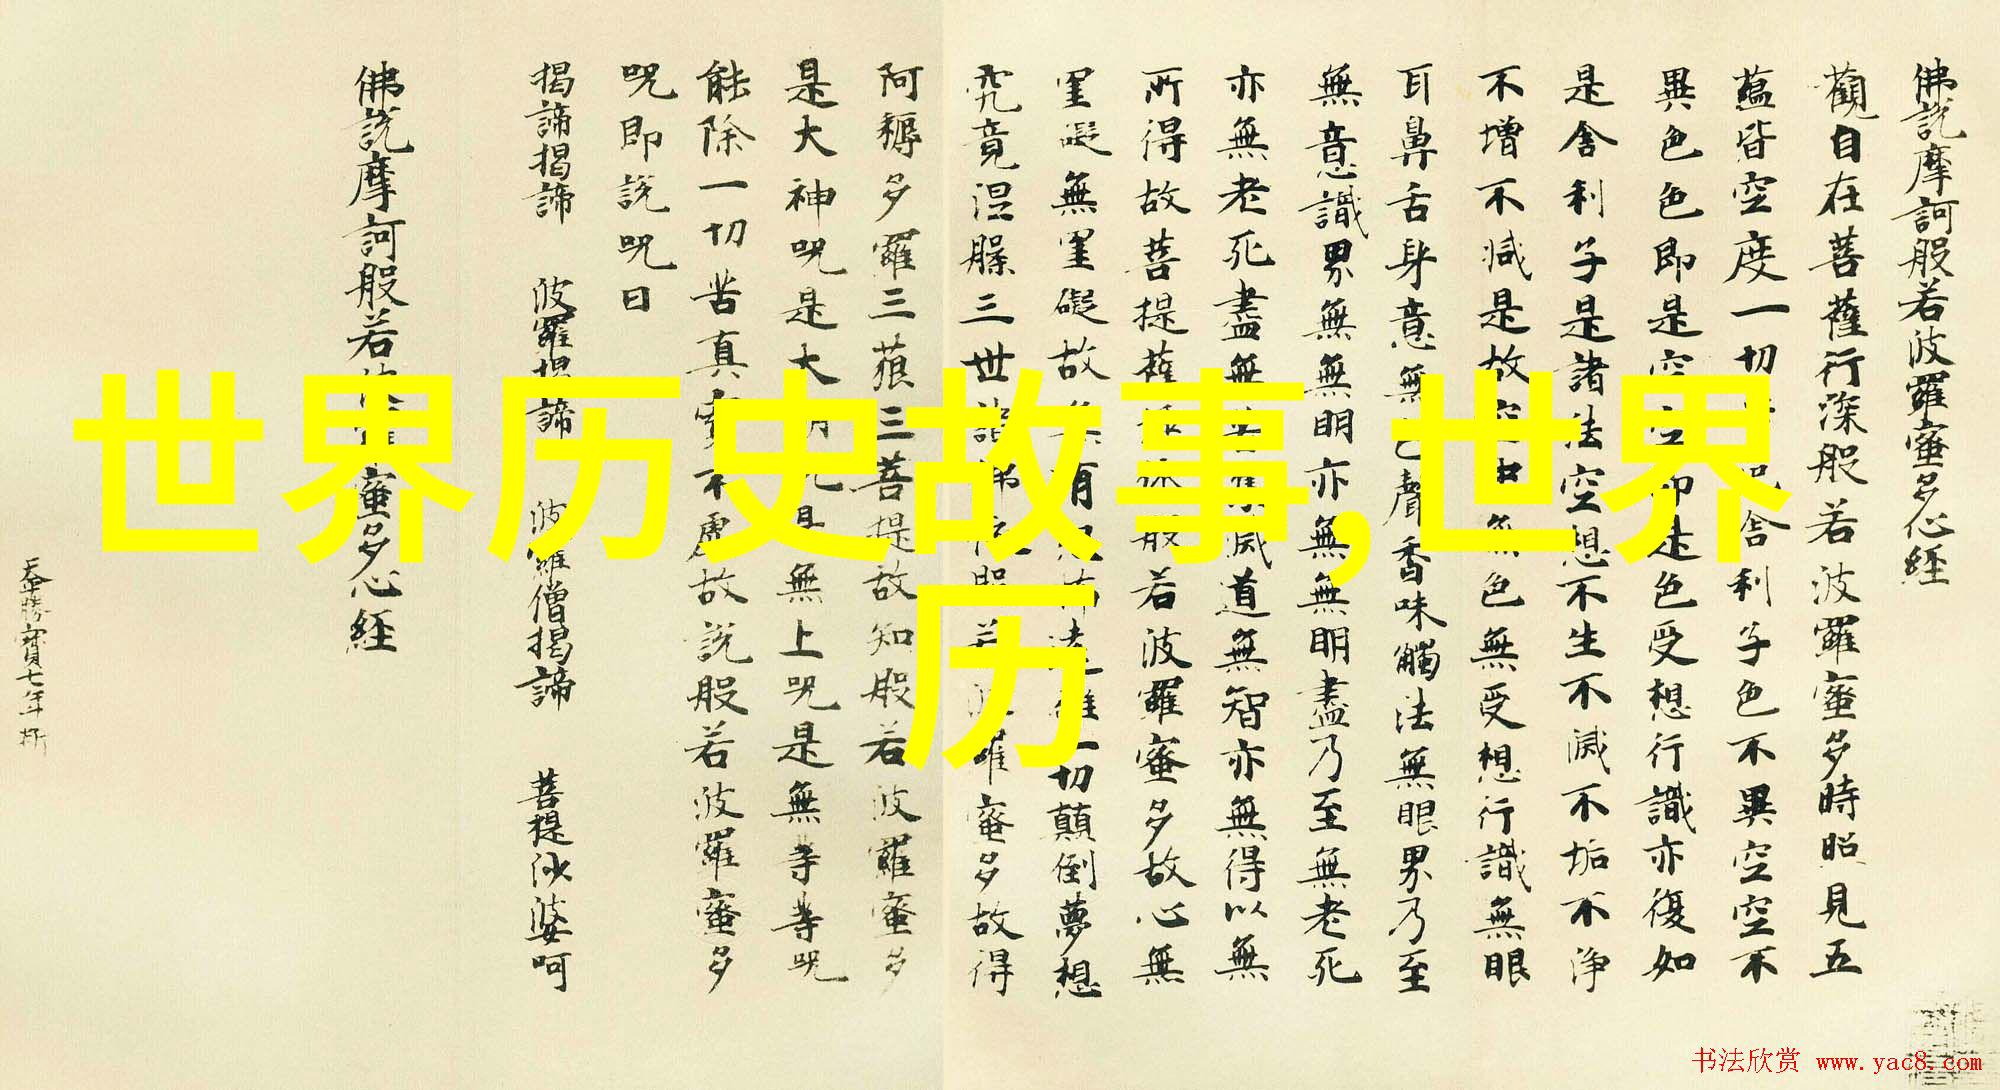 世界历史故事,世界
历
佛説摩訶般若波羅蜜多心経
觀自在菩薩行深般若波羅蜜多時照見五
蘊皆空度一切舍利子色不異空空不
異色色即是空空即是色受想行識亦復如
是舍利子是諸法空想不生不滅不垢不浄
不增不減是故空中無色無受想行識無眼
耳鼻舌身意無色聲香味觸法無眼界乃至
無意識界無無明亦無無明盡乃至無老死
亦無老死盡無滅道無智亦無得以無
所得故菩提薩般若波羅蜜多故心無
罣礙無罣礙故有一切顛倒夢想
究竟涅槃三世諸佛依般若波羅蜜多故得
阿耨多羅三藐三菩提故知般若波羅蜜多
是大神呪是大明呪是無上呪是無等等呪
能除一切苦真實不虚故説般若波羅蜜多
呪即説呪曰
揭諦揭諦 波羅揭諦 波羅僧揭諦 菩提沙婆呵
佛説摩訶般若波羅蜜多心経
勝寳七年
书法欣赏 www.yac8.com